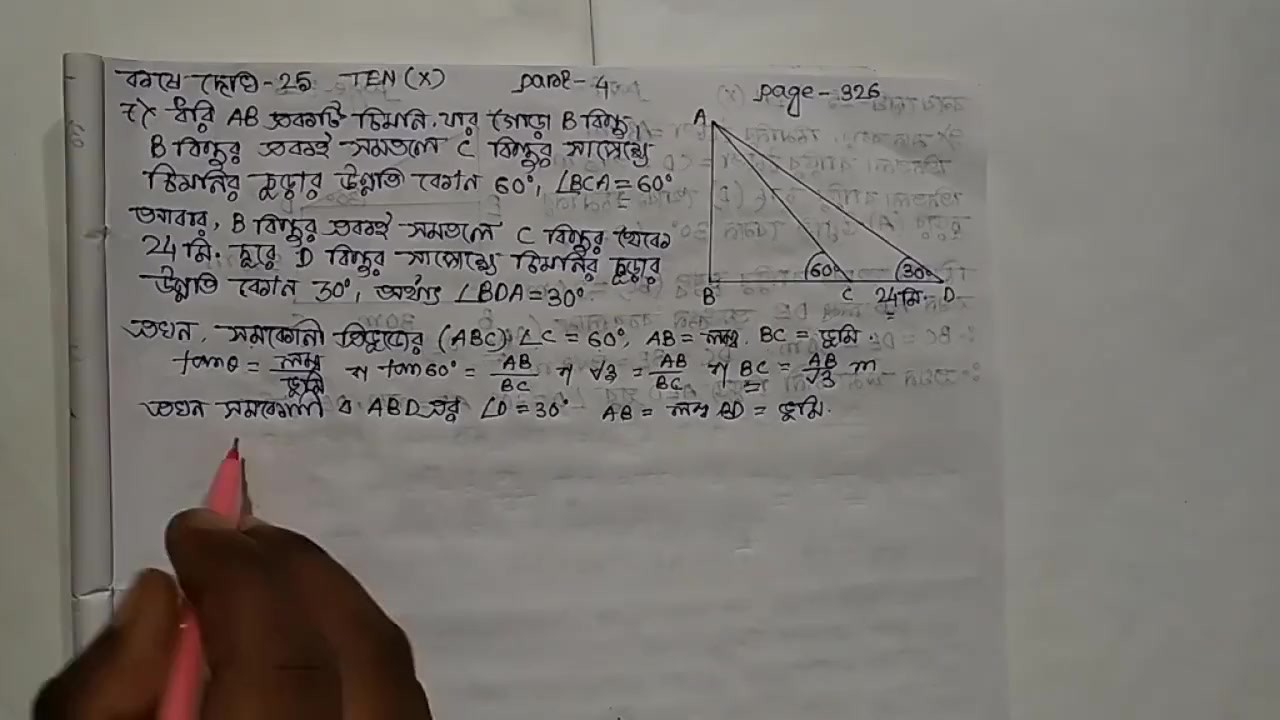 কষে দেখি-25 TEN (X) part-4 page-326
7) ধরি AB একটি চিমনি, যার গোড়া B বিন্দু,
B বিন্দুর একই সমতলে C বিন্দুর সাপেক্ষে
চিমনির চূড়ার উন্নতি কোণ 60°, ∠BCA = 60°
আবার, B বিন্দুর একই সমতলে C বিন্দুর থেকে
24 মি. দূরে D বিন্দুর সাপেক্ষে চিমনির চূড়ার
উন্নতি কোণ 30°, অর্থাৎ ∠BDA = 30°
A
60°
30°
B
C
24 মি.
D
এখন, সমকোণী ত্রিভুজের (ABC) ∠C = 60°, AB = লম্ব. BC = ভূমি.
tanθ = লম্ব/ভূমি বা tan60° = AB/BC বা √3 = AB/BC বা BC = AB/√3 m
এখন সমকোণী ABD এর ∠D = 30° AB = লম্ব BD = ভূমি.